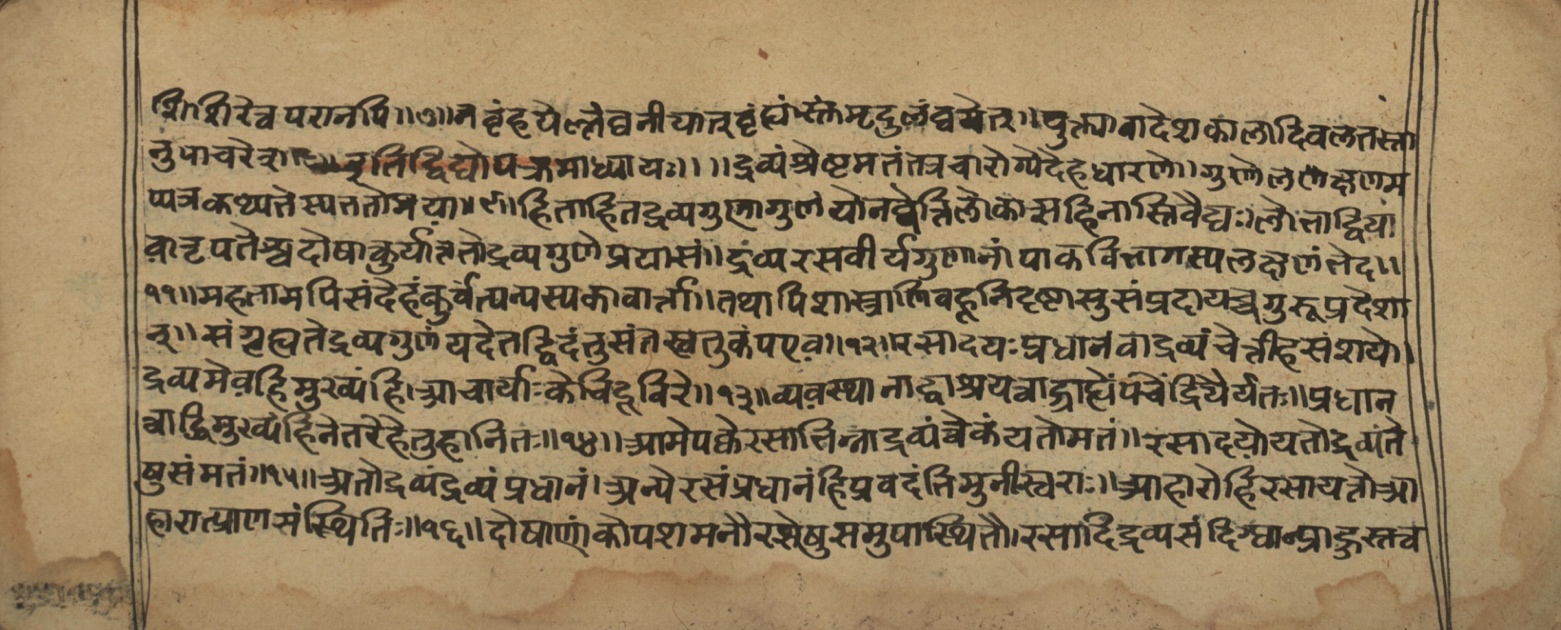 शिशिरेत्वपरानपि॥७॥न बृंहयेल्लंघनीयान् बृंह्यांस्तं मृदुलंघयेत्॥युक्त्यावादेशकालादिबलतस्ता
नुपाचरेत् इतिद्विधोपक्रमाध्यायः॥॥द्रव्यंश्रेष्टमतंतत्रचारोग्येदेहधारणे॥गुणेलक्षणम
प्यत्रकथ्यतेस्यततोमया॥९॥हिताहितद्रव्यगुणागुणंयोनवेत्तिलोकेसहिनास्तिवैद्यः॥लोत्ताद्विया
वानृपतेश्चदोषाकुर्यात्ततोद्रव्यगुणेप्रयासं॥द्रव्यरसवीर्यगुणानांपाकविभागस्यलक्षणंलेद॥
११॥महतामपिसंदेहंकुर्वंत्यन्यस्यकावार्त्ता॥तथापिशास्त्राणिबहूनिदृष्टासुसंप्रदायच्चगुरूप्रदेशा
त्॥संगृह्यतेद्रव्यगुणंयदेतद्विदंतुसंतस्त्वतुकंपएव॥१२॥रसादयःप्रधानंवाद्रव्यंचेत्तीहसंशये॥
द्रव्यमेवहिमुख्यंहि।आचार्याःकेचिदूचिरे॥१३॥व्यवस्थानाद्वाश्रयत्वाद्ग्राह्येपंचेंद्रियैर्यतः॥प्रधान
त्वाद्धिमुख्यंहिनेतरेहेतुहानितः॥१४॥आमेपक्वेरसाभिन्नाद्रव्यंत्वेकंयतोमतं॥रसादयोयतोद्रव्यंते
षुसंमतं॥१५॥अतोद्रव्यंद्रव्यंप्रधानं।अन्येरसंप्रधानंहिप्रवदंतिमुनीस्वराः॥आहारोहिरसायत्तोआ
हारात्प्राणसंस्थितिः॥१६॥दोषाणांकोपशमनौरसेषुसमुपास्थितौ।रसादिद्रव्यसंदिग्धान्प्राहुस्तत्व